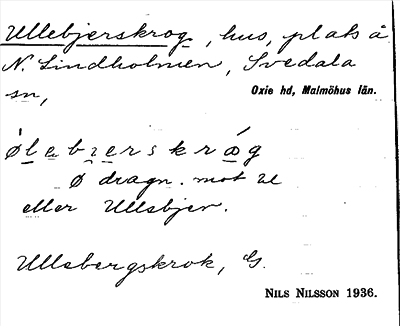 Ullebjerskrog, hus, pl. als å
N. Lindholmen, Svedala
sn, Oxie hd, Malmöhus län.
ǿlebɿerskrǫ́g
Ø dragn. mot U
eller Ullebjer.
Ullebergskrok, G.
NILS NILSSON 1936.